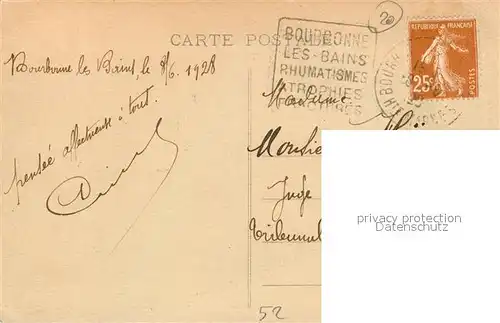 20
CARTE POSTALE
BOURBONNE
LES-BAINS
RHUMATISMES
ATROPHIES
FRACTURES
REPUBLIQUE FRANÇAISE
25c
POSTES
Bourbonne les Bains, le 8/6. 1928
pensée affectueuse à tout.
Madame
Monsie
Juge
Tribunal
52
privacy protection
Datenschutz